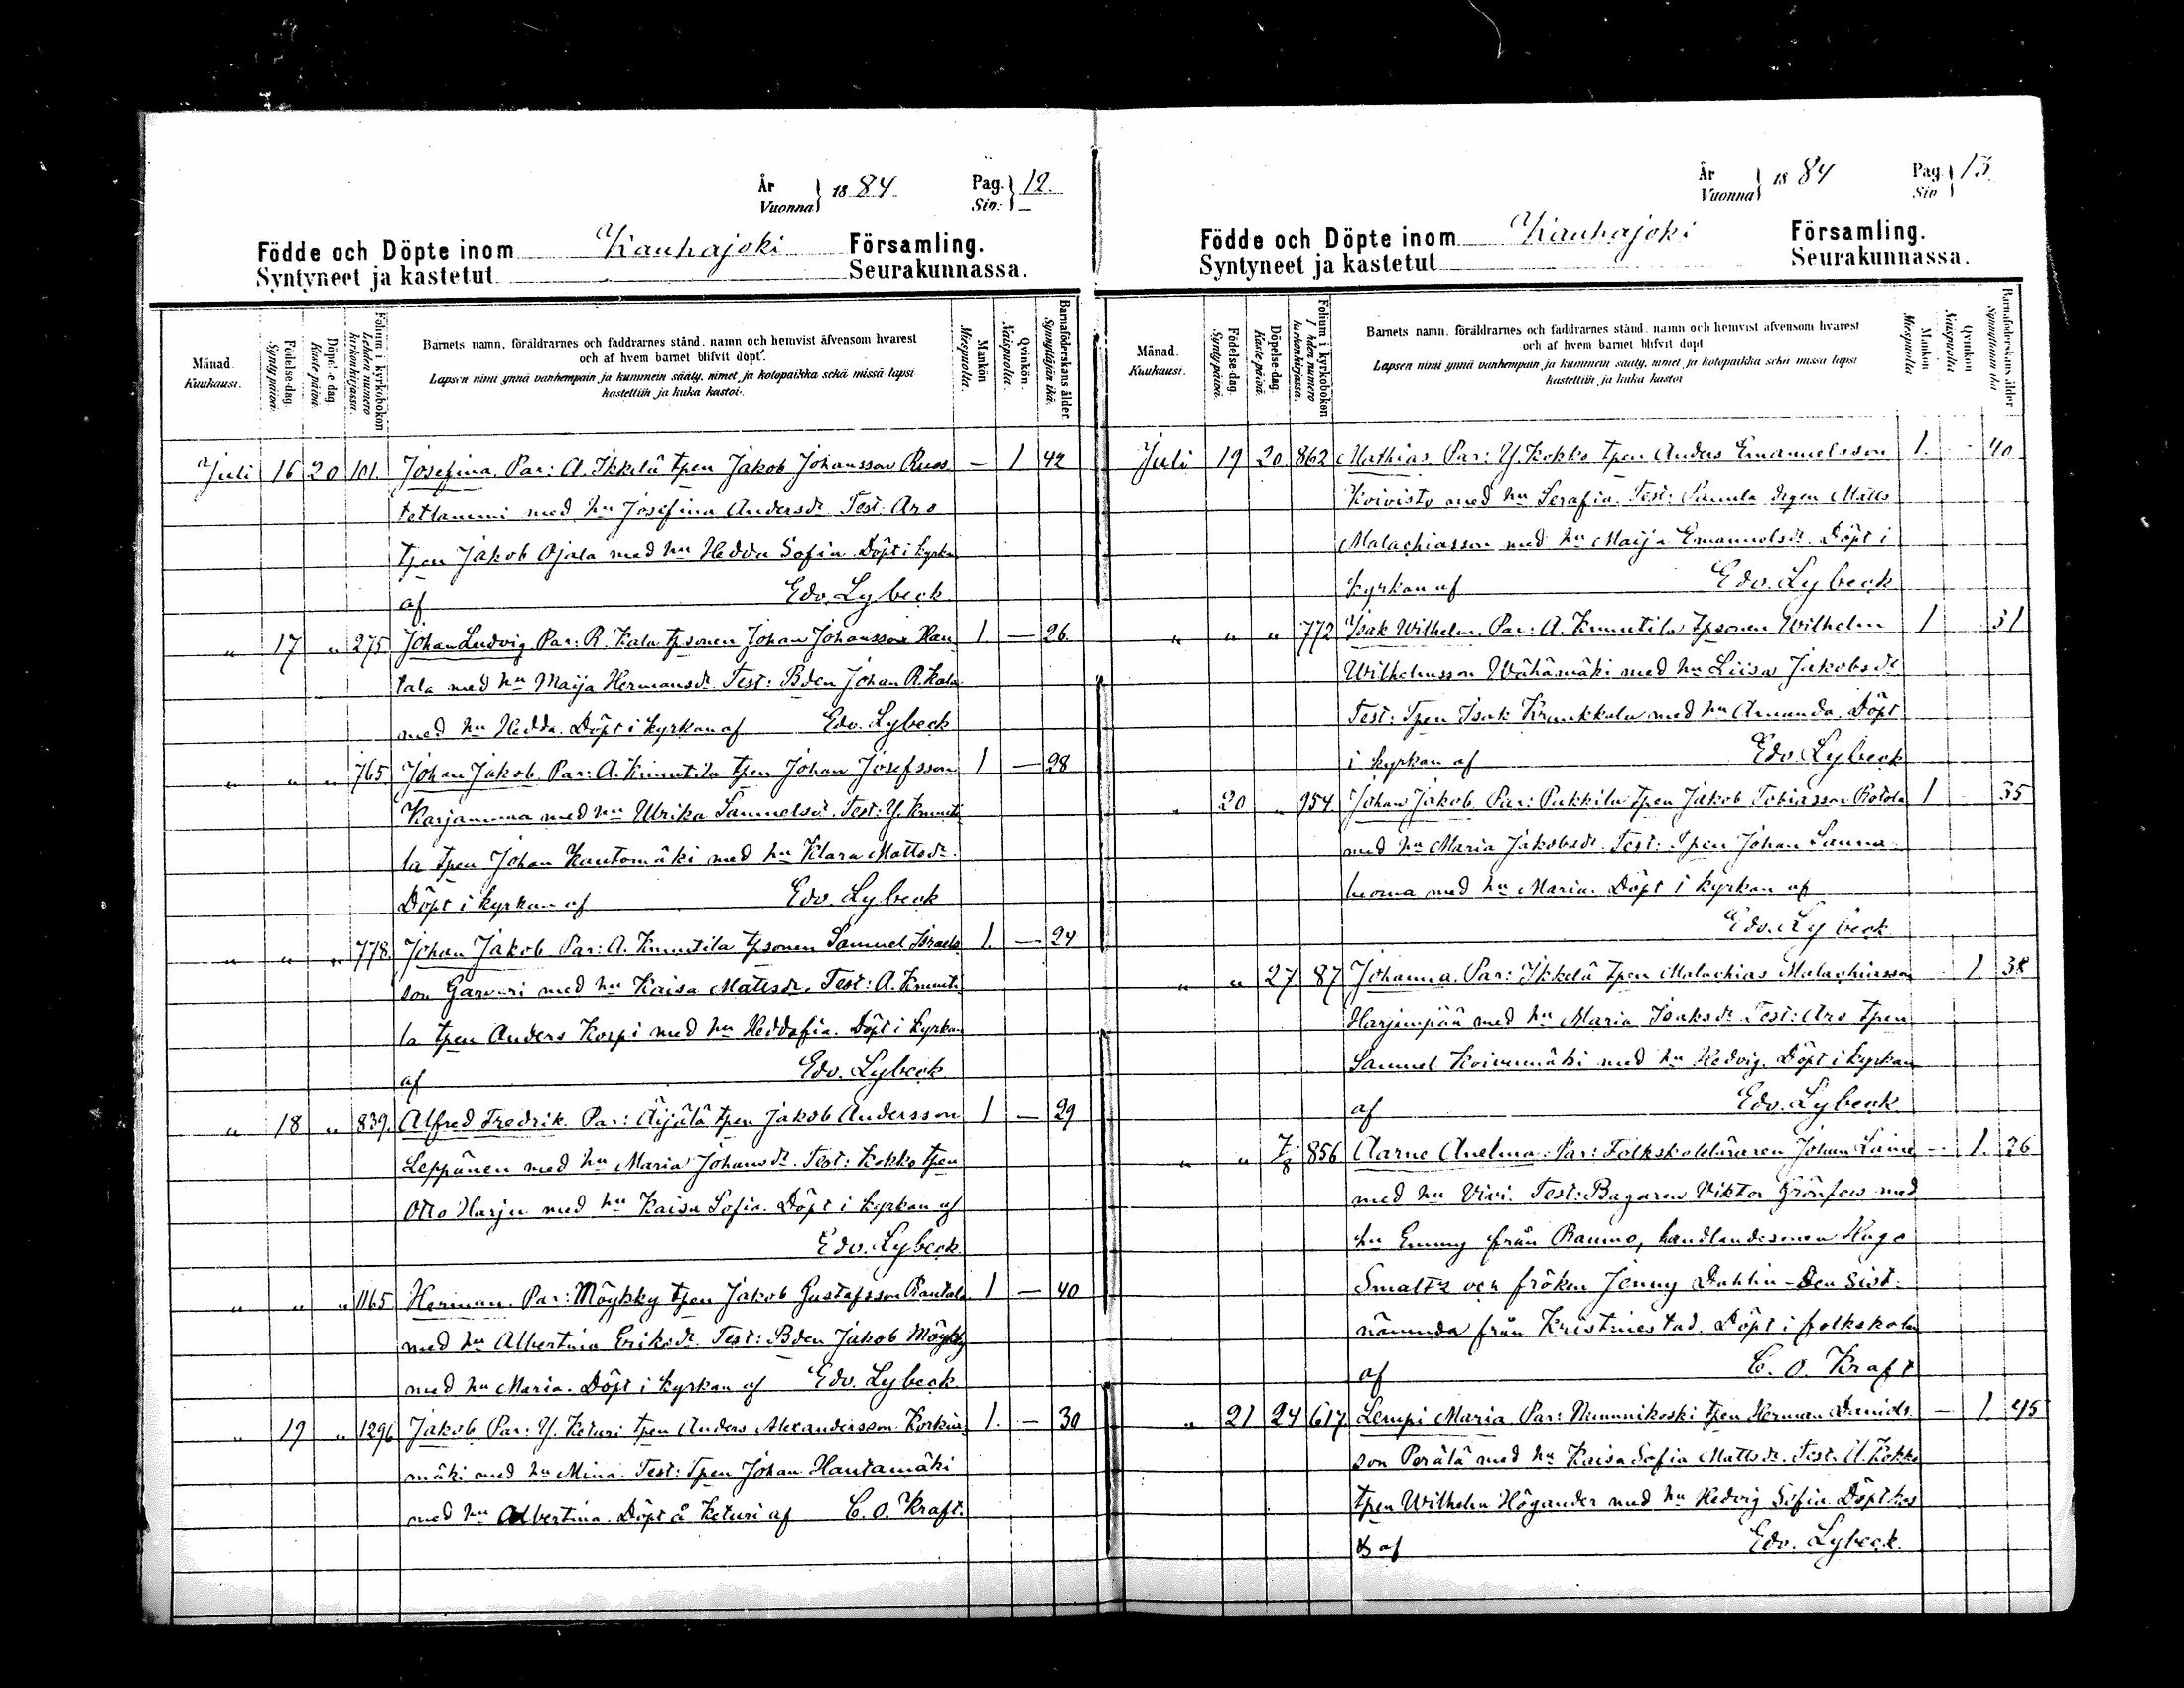 År
Vuonna } 1884. Pag. } 12.
Siv: –
Födde och Döpte inom Kauhajoki Församling.
Syntyneet ja kastetut Seurakunnassa.
Månad. Kuukausi. Födelse-dag. Syntypäivä. Döpelse-dag. Kastepäivä. Folium i kyrkoboken Lehden numero kirkonkirjassa.
Barnets namn, föräldrarnes och faddrarnes stånd, namn och hemvist äfvensom hvarest
och af hvem barnet blifvit döpt.
Lapsen nimi ynnä vanhempain ja kummein sääty, nimet ja kotopaikka sekä missä lapsi
kastettiin ja kuka kastoi.
Mankön Miespuolia. Qvinkön. Naispuolia. Barnaföderskans ålder. Synnyttäjän ikä.
Juli 16 20 101. Josefina. Par: A. Ikkelä tpen Jakob Johansson Ruos – 1 42
tetlammi med hu Josefina Andersdr. Test: Aro
tpen Jakob Ojala med hu Hedda Sofia. Döpt i kyrkan
af Edv. Lybeck
" 17 " 275 Johan Ludvig. Par: R. Kala tpsonen Johan Johansson Han 1 – 26.
tala med hu Maija Hermansdr. Test: Bden Johan R. Kala
med hu Hedda. Döpt i kyrkan af Edv. Lybeck
" " " 765 Johan Jakob. Par: A. Knuutila tpen Johan Josefsson 1 – 28
Karjanmaa med hu Ulrika Samuelsdr. Test: Y. Knuuti
la tpen Johan Kautomäki med hu Klara Mattsdr.
Döpt i kyrkan af Edv. Lybeck
" " " 778. Johan Jakob. Par: A. Knuutila tpsonen Samuel Israels 1. – 24
son Garvari med hu Kaisa Mattsdr. Test: A. Knuuti
la tpen Anders Korpi med hu Heddafia. Döpt i kyrkan
af Edv. Lybeck
" 18 " 839. Alfred Fredrik. Par: Äijälä tpen Jakob Andersson 1 – 29
Leppänen med hu Maria Johansdr. Test: Kokko tpen
Otto Harju med hu Kaisa Sofia. Döpt i kyrkan af
Edv. Lybeck
" " " 1165 Herman. Par: Möykky tpen Jakob Gustafsson Rantala 1 – 40
med hu Albertina Eriksdr. Test: Bden Jakob Möykky
med hu Maria. Döpt i kyrkan af Edv. Lybeck.
" 19 " 1296 Jakob. Par: Y. Keturi tpen Anders Alexandersson Korkia 1. – 30
mäki med hu Mina. Test: Tpen Johan Hautamäki
med hu Albertina. Döpt å Keturi af C. O. Kraft.
År
Vuonna } 1884 Pag. } 13.
Siv
Födde och Döpte inom Kauhajoki Församling.
Syntyneet ja kastetut Seurakunnassa.
Månad. Kuukausi. Födelse-dag. Syntypäivä. Döpelse-dag. Kastepäivä. Folium i kyrkoboken Lehden numero kirkonkirjassa.
Barnets namn, föräldrarnes och faddrarnes stånd, namn och hemvist äfvensom hvarest
och af hvem barnet blifvit döpt
Lapsen nimi ynnä vanhempain ja kummein sääty, nimet ja kotopaikka sekä missä lapsi
kastettiin ja kuka kastoi
Mankön Miespuolia Qvinkön Naispuolia Barnaföderskans ålder Synnyttäjän ikä
Juli 19 20 862 Mathias. Par: Y. Kokko tpen Anders Emanuelsson 1. 40
Koivisto med hu Serafia. Test: Panula degen Matts
Malachiasson med hu Maija Emanuelsdr. Döpt i
kyrkan af Edv. Lybeck
" " " 772 Isak Wilhelm. Par: A. Knuutila tpsonen Wilhelm 1 31
Wilhelmsson Wähämäki med hu Liisa Jakobsdr.
Test: Tpen Isak Krunkkala med hu Amanda. Döpt
i kyrkan af Edv. Lybeck
" 20 " 954 Johan Jakob. Par: Pukkila tpen Jakob Tobiasson Rotola 1 35
med hu Maria Jakobsdr. Test: Tpen Johan Launa
luoma med hu Maria. Döpt i kyrkan af
Edv. Lybeck
" " 27 87 Johanna. Par: Ikkelä tpen Malachias Malachiasson 1 38
Harjunpää med hu Maria Isaksdr. Test: Aro tpen
Samuel Koivumäki med hu Hedvig. Döpt i kyrkan
af Edv. Lybeck
" " 7/8 856 Aarne Anelma. Par: Folkskolläraren Johan Laine – 1. 26
med hu Vivi. Test: Bagaren Viktor Grönfors med
hu Emmy från Raumo, handlandesonen Hugo
Smaltz och fröken Jenny Dahlin – Den sist-
nämnda från Kristinestad. Döpt i folkskolan
af C. O. Kraft
" 21 24 617. Lempi Maria. Par: Nummikoski tpen Herman Daniels – 1 45
son Perälä med hu Kaisa Sofia Mattsdr. Test: A. Kokko
tpen Wilhelm Högander med hu Hedvig Sofia. Döpt hos
ds af Edv. Lybeck.